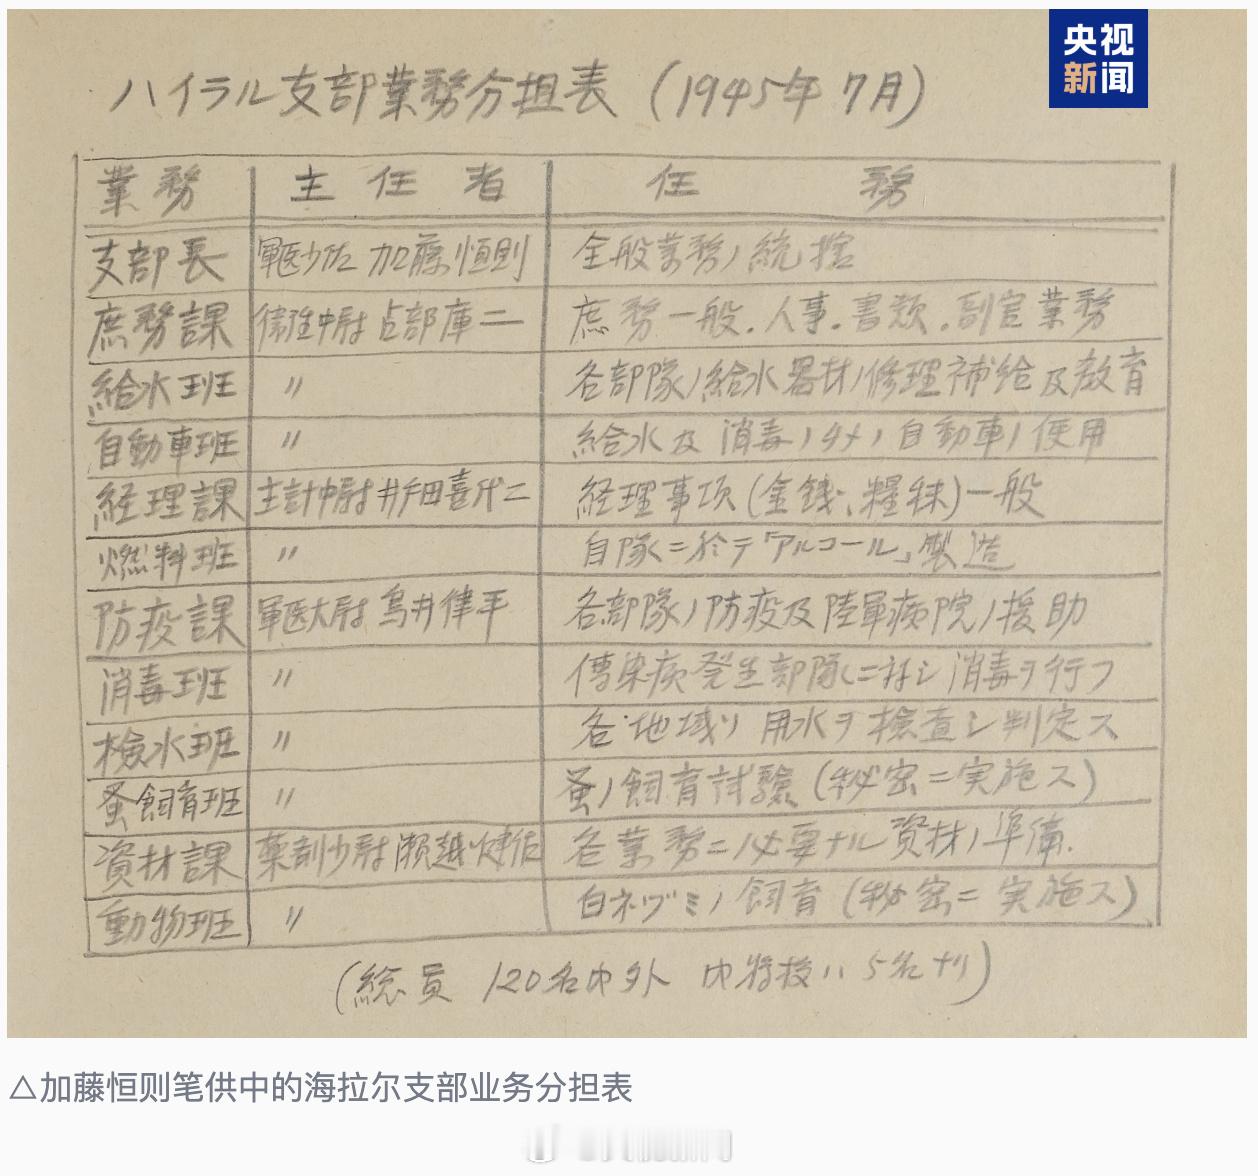 央视
新闻
ハイラル支部業務分担表 (1945年7月)
業務 主任者 任務
支部長 軍医少佐 加藤恒則 全般業務ノ統括
庶務課 衛生中尉 占部庫二 庶務一般.人事.書類.副官業務
給水班 〃 各部隊ノ給水器材ノ修理補給及教育
自動車班 〃 給水及消毒ノタメノ自動車ノ使用
経理課 主計中尉 井戸田喜代二 経理事項(金銭、糧秣)一般
燃料班 〃 自隊ニ於テ「アルコール」製造
防疫課 軍医大尉 鳥井律平 各部隊ノ防疫及陸軍病院ノ援助
消毒班 〃 傳染病発生部隊ニ対シ消毒ヲ行フ
検水班 〃 各地域ノ用水ヲ検査シ判定ス
蚤飼育班 〃 蚤ノ飼育試験(秘密ニ実施ス)
資材課 薬剤少尉 瀬越健佑 各業務ニ必要ナル資材ノ準備.
動物班 〃 白ネヅミノ飼育(秘密ニ実施ス)
(総員 120名内外 内将校ハ5名ナリ)
△加藤恒则笔供中的海拉尔支部业务分担表